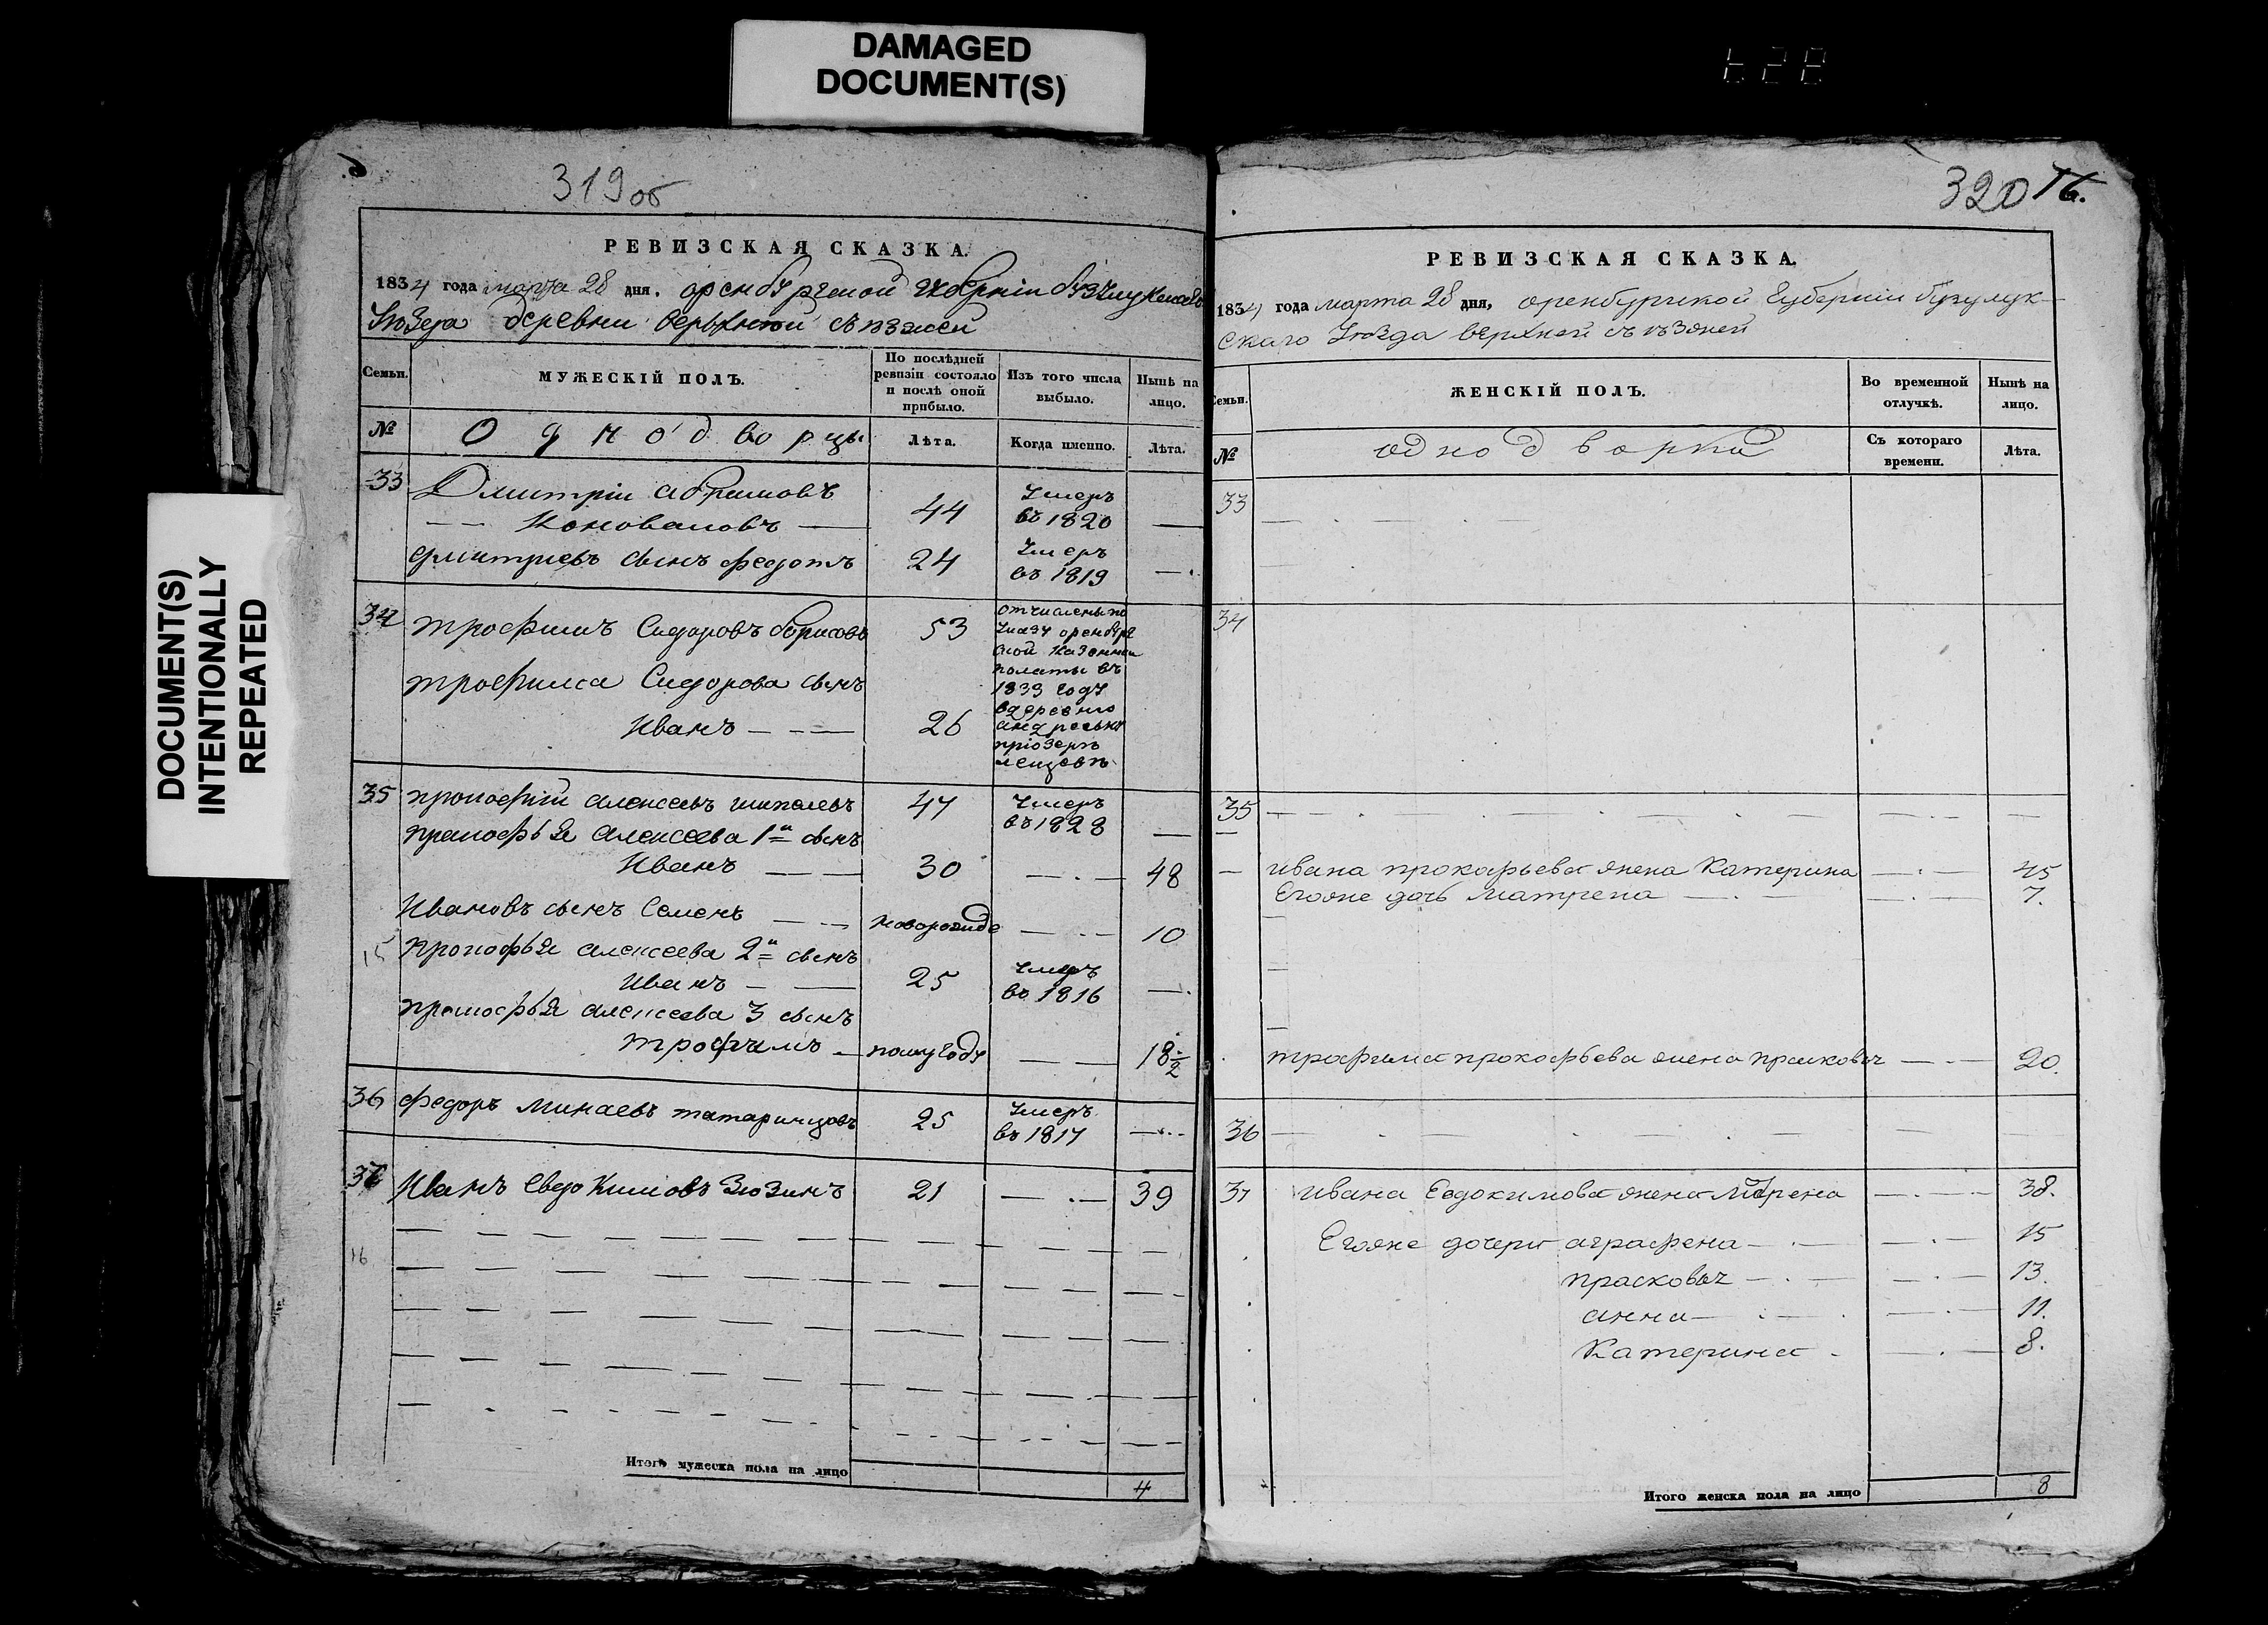 DAMAGED
DOCUMENT(S)
DOCUMENT(S)
INTENTIONALLY
REPEATED
319 об
РЕВИЗСКАЯ СКАЗКА.
1834 года марта 28 дня. оренбургской губернiи бузулукскаго
уѣзда деревни верьхней съѣзжей
Семьи.
МУЖЕСКІЙ ПОЛЪ.
По послѣдней ревизіи состояло и послѣ оной прибыло.
Изъ того числа выбыло.
Нынѣ на лицо.
№
Однодворцы
Лѣта.
Когда именно.
Лѣта.
33 Дмитрiи абрамовъ
Коноваловъ 44 Умеръ въ 1820
дмитриевъ сынъ федотъ 24 Умеръ въ 1819
34 трофимъ Сидоровъ борисовъ 53
трофима Сидорова сынъ
Иванъ 26
отчислены по
указу оренбург
ской казенной
полаты въ
1833 году
вдеревню
андреевку
35 прокофiй алексеевъ 47 Умеръ въ 1828
прокофья алексеева 1й сынъ
Иванъ 30 48
Ивановъ сынъ Семенъ 10
прокофья алексеева 2й сынъ
Иванъ 25 Умеръ въ 1816
прокофья алексеева 3 сынъ
трофимъ полугоду 18 1/2
36 федоръ минаевъ татаринцовъ 25 Умеръ въ 1817
37 Иванъ Евдокимовъ Зюзинъ 21 39
16
Итого мужеска пола на лицо 4
320 16.
РЕВИЗСКАЯ СКАЗКА.
1834 года марта 28 дня, оренбургской губернии бузулук-
скаго уѣзда верхней съѣзжей
Семьи.
ЖЕНСКІЙ ПОЛЪ.
Во временной отлучкѣ.
Нынѣ на лицо.
№
однодворки
Съ котораго времени.
Лѣта.
33
34
35
ивана прокофьева жена Катерина 45
Егоже дочь матрена 7.
трофима прокофьева жена прасковья 20.
36
37 ивана Евдокимова жена матрена 38.
Егоже дочери аграфена 15
прасковья 13.
анна 11.
Катерина 8.
Итого женска пола на лицо 8